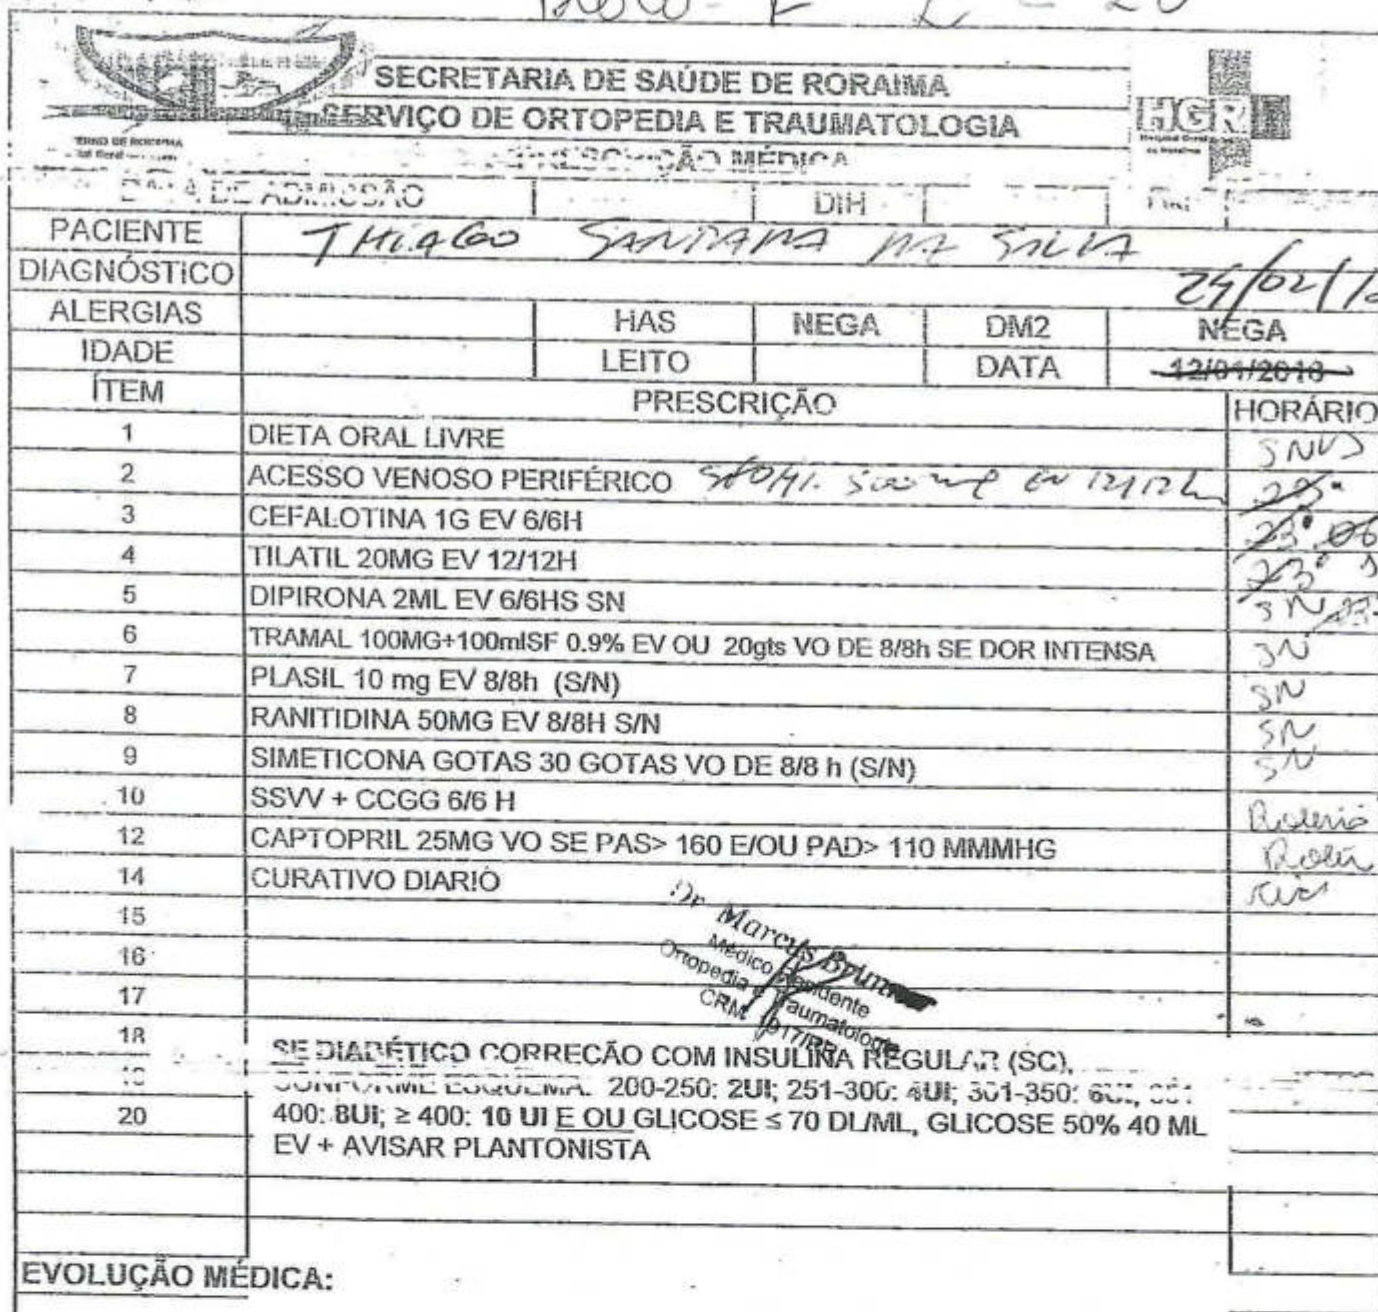 SECRETARIA DE SAÚDE DE RORAIMA
SERVIÇO DE ORTOPEDIA E TRAUMATOLOGIA
PRESCRIÇÃO MÉDICA
HGR
DATA DE ADMISSÃO DIH
PACIENTE THIAGO SANTANA DA SILVA
DIAGNÓSTICO
ALERGIAS HAS NEGA DM2 NEGA
IDADE LEITO DATA 12/01/2018
ÍTEM PRESCRIÇÃO HORÁRIO
1 DIETA ORAL LIVRE SND
2 ACESSO VENOSO PERIFÉRICO EV 12/12h
3 CEFALOTINA 1G EV 6/6H
4 TILATIL 20MG EV 12/12H
5 DIPIRONA 2ML EV 6/6HS SN SN
6 TRAMAL 100MG+100mlSF 0.9% EV OU 20gts VO DE 8/8h SE DOR INTENSA SN
7 PLASIL 10 mg EV 8/8h (S/N) SN
8 RANITIDINA 50MG EV 8/8H S/N SN
9 SIMETICONA GOTAS 30 GOTAS VO DE 8/8 h (S/N) SN
10 SSVV + CCGG 6/6 H Rotina
12 CAPTOPRIL 25MG VO SE PAS> 160 E/OU PAD> 110 MMMHG
14 CURATIVO DIARIO
15
Dr Marcus
16
Médico Residente
Ortopedia e Traumatologia
17
CRM 1917/RR
18 SE DIABÉTICO CORREÇÃO COM INSULINA REGULAR (SC),
CONFORME ESQUEMA: 200-250: 2UI; 251-300: 4UI; 301-350: 6UI;
20 400: 8UI; ≥ 400: 10 UI E OU GLICOSE ≤ 70 DL/ML, GLICOSE 50% 40 ML
EV + AVISAR PLANTONISTA
EVOLUÇÃO MÉDICA: